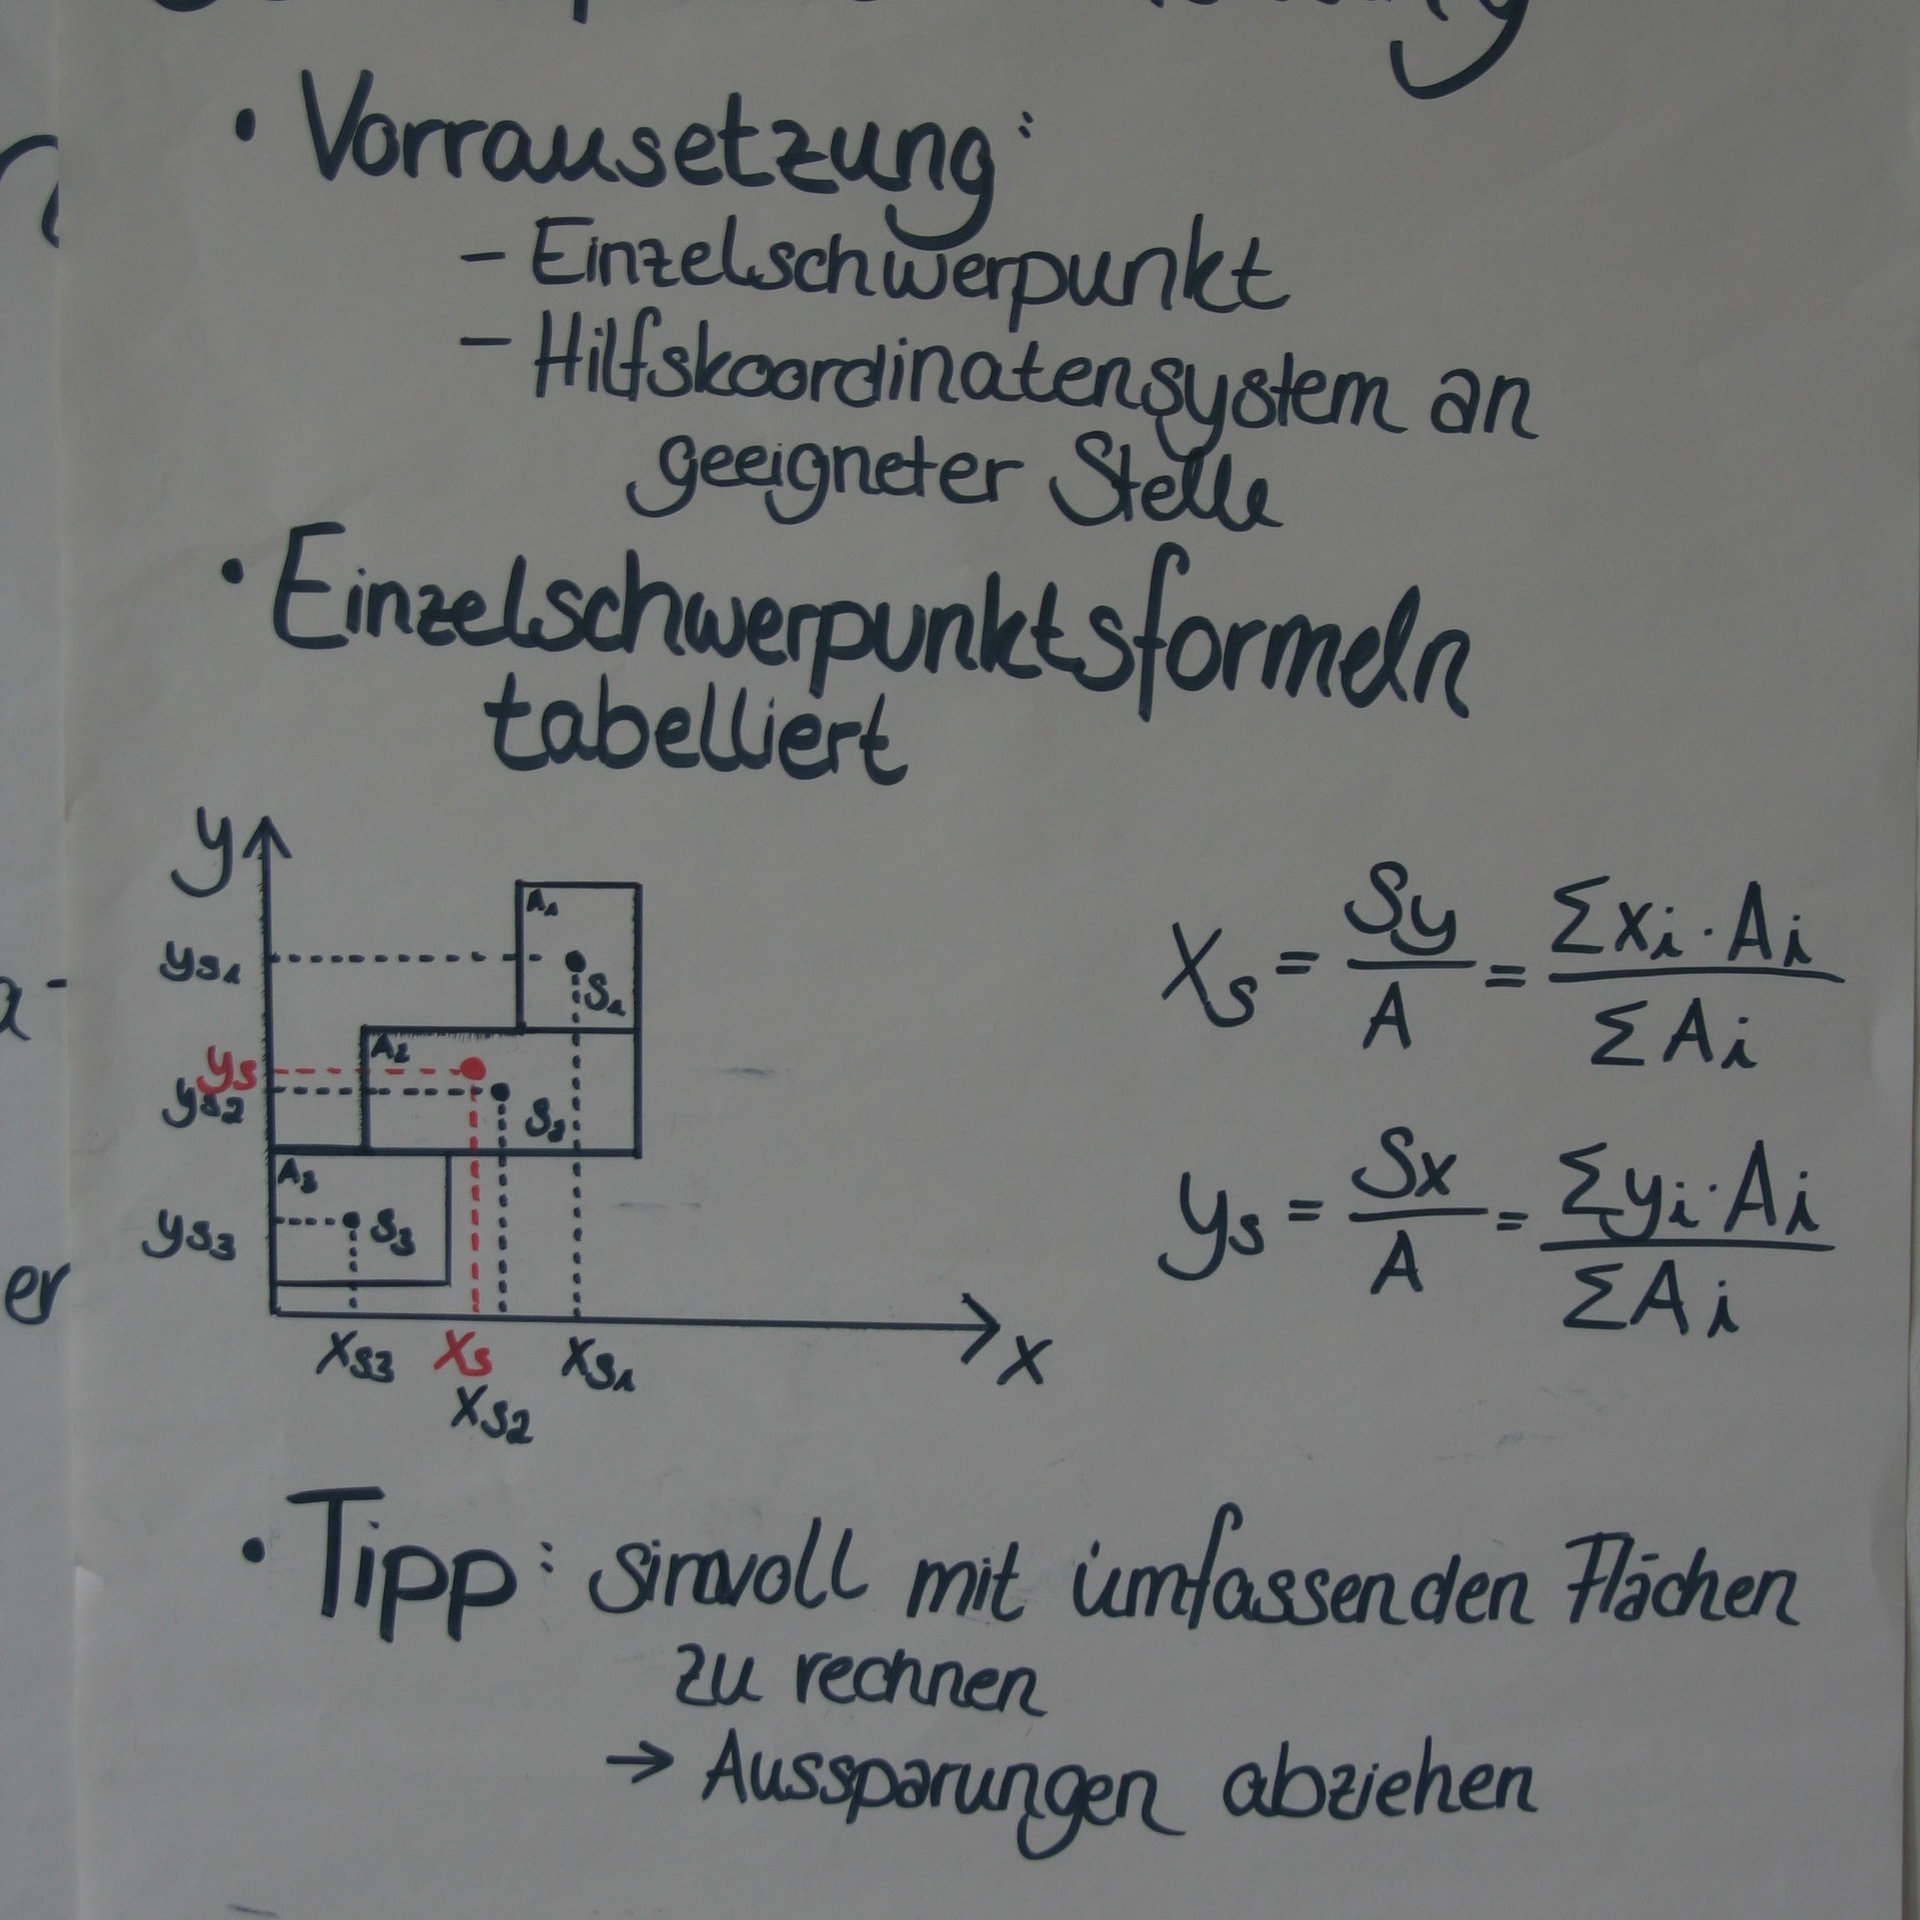 • Vorrausetzung:
- Einzelschwerpunkt
- Hilfskoordinatensystem an
geeigneter Stelle
• Einzelschwerpunktsformeln
tabelliert
y
A1
yS1
S1
A2
yS
yS2
S2
A3
yS3
S3
xS3 xS xS1
xS2
x
xS = Sy / A = Σxi · Ai / ΣAi
yS = Sx / A = Σyi · Ai / ΣAi
• Tipp: sinnvoll mit umfassenden Flächen
zu rechnen
→ Aussparungen abziehen
er